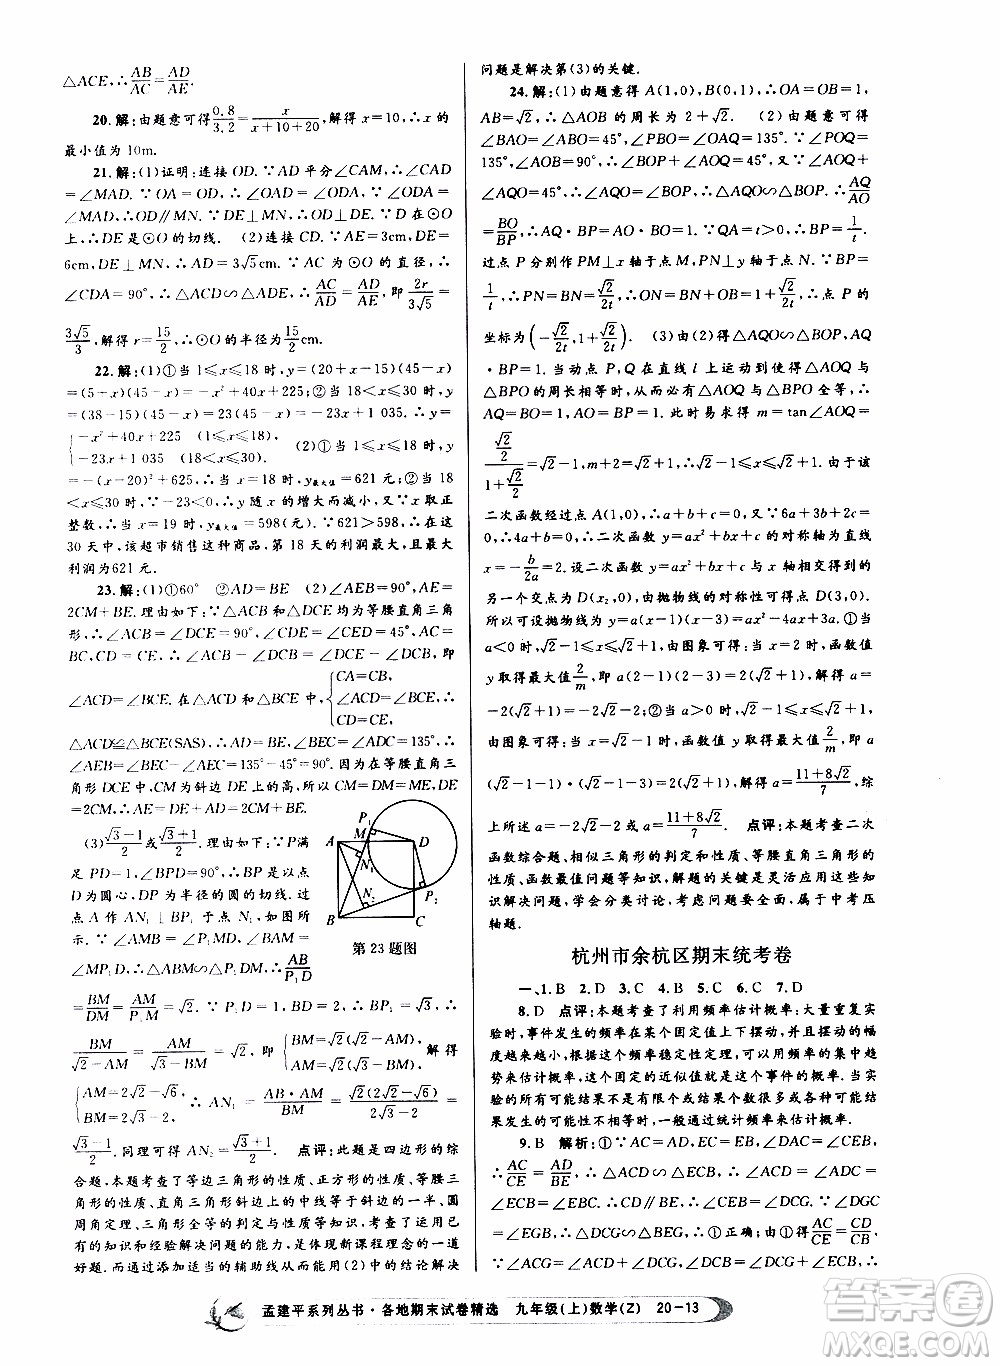 △ACE,∴AB/AC=AD/AE.
20.解:由题意可得0.8/3.2=x/(x+10+20),解得x=10,∴x的
最小值为10m.
21.解:(1)证明:连接OD.∵AD平分∠CAM,∴∠CAD
=∠MAD.∵OA=OD,∴∠OAD=∠ODA,∵∠ODA=
∠MAD,∴OD∥MN.∵DE⊥MN,∴DE⊥OD.∵D在⊙O
上,∴DE是⊙O的切线. (2)连接CD.∵AE=3cm,DE=
6cm,DE⊥MN,∴AD=3√5cm.∵AC为⊙O的直径,∴
∠CDA=90°,∴△ACD∽△ADE,∴AC/AD=AD/AE,即2r/3√5=
3√5/3,解得r=15/2,∴⊙O的半径为15/2cm.
22.解:(1)①当1≤x≤18时,y=(20+x-15)(45-x)
=(5+x)(45-x)=-x²+40x+225;②当18<x≤30时,y
=(38-15)(45-x)=-23x+1 035.∴y=
{-x²+40x+225 (1≤x≤18), -23x+1 035 (18<x≤30). (2)①当1≤x≤18时,y
=-(x-20)²+625,当x=18时,y最大值=621元;②当18
<x≤30时,∴y随x的增大而减小,∵x取正
整数,∴当x=19时,y最大值=598(元).∵621>598,∴在这
30天中,该超市销售这种商品第18天的利润最大,且最大
利润为621元.
23.解:(1)①60° ②AD=BE (2)∠AEB=90°,AE=
2CM+BE.理由如下:∵△ACB和△DCE均为等腰三角
形,∴∠ACB=∠DCE=90°,∠CDE=∠CED=45°,∴AC=
BC,CD=CE,∴∠ACB-∠DCB=∠DCE-∠DCB,即
∠ACD=∠BCE.在△ACD和△BCE中,{CA=CB, ∠ACD=∠BCE, CD=CE,∴
△ACD≌△BCE(SAS).∴AD=BE,∠BEC=∠ADC=135°,∴
∠AEB=∠BEC-∠CED=135°-45°=90°.因为在等腰三角
形DCE中,CM为斜边DE上的高,所以CM=DM=
ME.∴DE=2CM,∴AE=DE+AD=2CM+BE.
(3)(√3-1)/2或(√3+1)/2.解题如下:∵P满
足PD=1,∠BPD=90°,∴BP是以点
D为圆心,DP为半径的圆的切线.过
点A作AN₁⊥BP₁于点N₁,如图所
示.∵∠AMB=∠P₁MD,∠BAM=
∠MP₁D,∴△AMB∽△P₁MD,∴AB/P₁D
=BM/DM=AM/P₁M=√2.∵P₁D=1,BD=2,∴BP₁=√3,∴
BM/(√2-AM)=AM/(√3-BM)=√2,即{BM=√2(√2-AM), AM=√2(√3-BM),解得
{AM=2√2-√6, BM=2√3-2,∴AN₁=AB·AM/BM=√2(2√2-√6)/(2√3-2)=
(√3-1)/2.同理可得AN₂=(√3+1)/2. 点评:本题是四边形的综
合题,本题考查了等边三角形的性质、正方形的性质、等腰三
角形的性质、直角三角形斜边上的中线等于斜边的一半、圆
周角定理、三角形全等的判定与性质等知识,考查了运用已
有的知识和经验解决问题的能力,是体现新课程理念的一道
好题.而通过添加适当的辅助线从而能用(2)中的结论解决
第23题图
A M P₁ D N₁ N₂ P₂ B C
问题是解决第(3)的关键.
24.解:(1)由题意得A(1,0),B(0,1),∴OA=OB=1,
AB=√2,∴△AOB的周长为2+√2. (2)由题意可得
∠BAO=∠ABO=45°,∠PBO=∠OAQ=135°.∵∠POQ=
135°,∠AOB=90°,∴∠BOP+∠AOQ=45°,又∵∠AOQ+
∠AQO=45°,∴∠AQO=∠BOP,∴△AQO∽△BOP.∴AQ/AO
=BO/BP,∴AQ·BP=AO·BO=1.∵AQ=t>0,∴BP=1/t.
过点P分别作PM⊥x轴于点M,PN⊥y轴于点N,∵BP=
1/t,∴PN=BN=√2/2t,∴ON=OB+BN=1+√2/2t,∴点P的
坐标为(-√2/2t,1+√2/2t). (3)由(2)得△AQO∽△BOP,AQ
·BP=1,因为动点P,Q在直线l上运动时,△AOQ与
△BPO的周长相等时,从而必有△AOQ与△BPO全等,∴
AQ=BO=1,AO=BP=1.此时易求得m=tan∠AOQ=
(√2/2)/(1+√2/2)=√2-1,m+1=√2,∴2/m=2(√2+1).由于该
二次函数经过点A(1,0),∴a+b+c=0,又∵6a+3b+2c
=0,∴b=-4a,c=3a,∴y=ax²+bx+c的对称轴为直线
x=-b/2a=2.设二次函数y=ax²+bx+c的图象与x轴的
另一个交点为D(x₂,0),由抛物线的对称性可得D(3,0).
所以可设抛物线为y=a(x-1)(x-3)=ax²-4ax+3a.①当
a<0时,√2-1≤x≤√2+1,由图象可得:当x=2时,函数值
y取得最大值2/m=a(2-1)(2-3)=2(√2+1),解得a=
-2(√2+1)=-2√2-2;②当a>0时,√2-1≤x≤√2+1,
由图象可得当x=√2-1时,函数值y取得最大值2/m,即a
(√2-1-1)·(√2-1-3)=2(√2+1),解得a=(11+8√2)/7,综
上所述a=-2√2-2或a=(11+8√2)/7. 点评:本题考查二次
函数综合题、相似三角形的判定和性质、等腰三角形的性
质、函数最值问题等知识,解题的关键是灵活应用这些知
识解决问题,学会分类讨论,考虑问题要全面,属于中考压
轴题.
杭州市余杭区期末统考卷
一、1.B 2.D 3.A 4.C 5.B 6.C 7.D
8.D 点评:本题考查了利用频率估计概率:大量重复实
验时,事件发生的频率在某个固定值上下摆动,并且摆动的幅
度越来越小,根据这个频率稳定性定理,可以用频率的集中趋
势来估计概率,这个固定的近似值就是这个事件的概率.当实
验的所有可能结果不是有限个或结果个数很多,或各种可能
结果发生的可能性不相等时,一般通过统计频率来估计概率.
9.B 解析:①∵AC·BE=AD·CE,
∴AC/CE=AD/BE.∵∠CAD=∠ECB,∴△ACD∽△CEB,∴
∠ECB=∠EBC,∴CE=BE,∴AC=AD.②∵∠DGC
=∠EGB,∴△DCG∽△ECB.∴由①得AC/CE=CD/CB
∵∠ACD=∠CEB,∴△ACD∽△ECB,∴∠ADC=∠DCG,
孟建平系列丛书·各地期末试卷精选 九年级(上)数学(Z) 20-13
答案圈
MXQE.COM